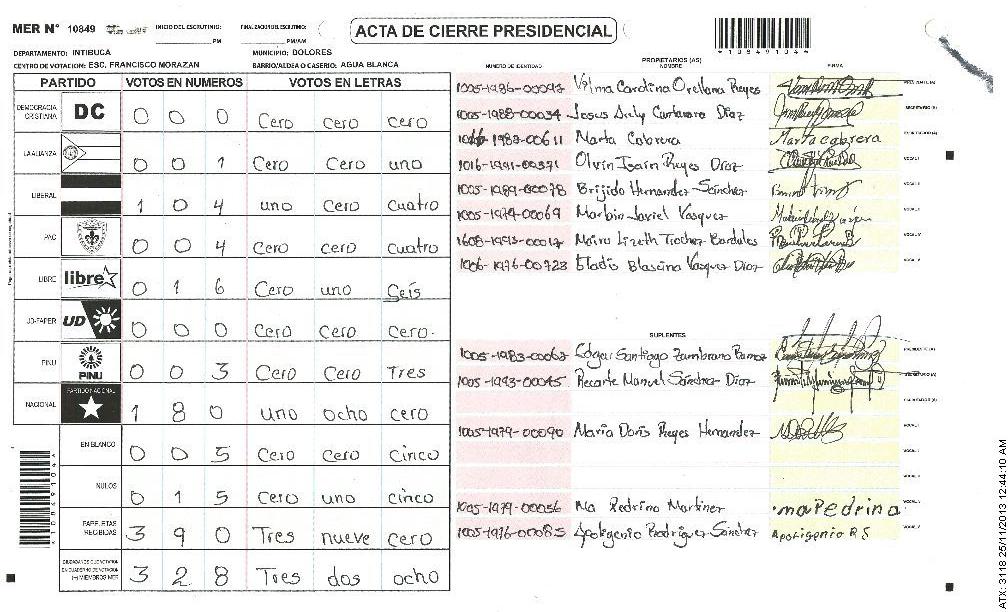 MER N° 10849 INICIO DEL ESCRUTINIO: PM FINALIZACION DEL ESCRUTINIO: PM/AM ACTA DE CIERRE PRESIDENCIAL
DEPARTAMENTO: INTIBUCA MUNICIPIO: DOLORES
CENTRO DE VOTACION: ESC. FRANCISCO MORAZAN BARRIO/ALDEA O CASERIO: AGUA BLANCA
PARTIDO VOTOS EN NUMEROS VOTOS EN LETRAS
DEMOCRACIA CRISTIANA DC 0 0 0 Cero cero cero
LA ALIANZA 0 0 1 Cero Cero uno
LIBERAL 1 0 4 uno Cero cuatro
PAC 0 0 4 Cero cero cuatro
LIBRE libre 0 1 6 Cero uno Seis
UD-FAPER UD 0 0 0 Cero Cero cero.
PINU PINU 0 0 3 Cero Cero Tres
NACIONAL PARTIDO NACIONAL 1 8 0 uno ocho cero
EN BLANCO 0 0 5 Cero Cero cinco
NULOS 0 1 5 Cero uno cinco
PAPELETAS RECIBIDAS 3 9 0 Tres nueve cero
3 2 8 Tres dos ocho
PROPIETARIOS (AS)
NUMERO DE IDENTIDAD NOMBRE FIRMA
Carolina Orellana Reyes
1005-1988-00034 Diaz
1983-00611 Marta Cabrera Marta cabrera
1016-1991-00371 Olvin Isain Reyes Diaz
1005-1989-00078 Brijido Hernandez Sanchez
1005-1974-00069 Marbin Javiel Vasquez
1608-1993-00017
1006-1976-00723 Vasquez Diaz
SUPLENTES
1005-1983-00062 Edgar Santiago Zambrano
1005-1993-00045 Manuel Sanchez Diaz
1005-1979-00090 Maria Doris Reyes Hernandez
1005-1979-00056 Ma Pedrina Martinez ma Pedrina
1005-1976-00085 Apoligenio Rodriguez Sanchez Apoligenio R S
10849104
ATX: 3118 25/11/2013 12:44:10 AM